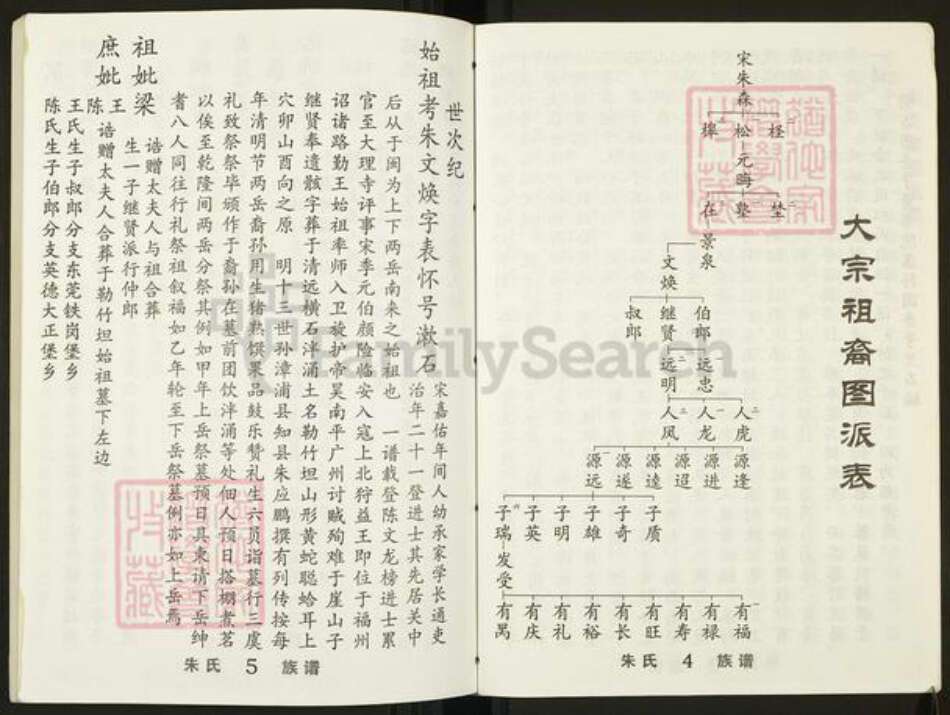 大宗祖裔图派表
宋朱森
樟 松 柽
元晦
在 塾 埜
景泉
文焕
叔郎 继贤 伯郎
远明 远忠
人凤 人龙 人虎
源远 源遂 源逵 源迢 源进 源逢
子瑞 子英 子明 子雄 子奇 子质
发受
有禺 有庆 有礼 有裕 有长 有旺 有寿 有禄 有福
朱氏 4 族谱
世次纪
始祖考朱文焕字表怀号漱石
宋嘉佑年间人幼承家学长通吏
治年二十一登进士其先居关中
后从于闽为上下两岳南来之始祖也 一谱载登陈文龙榜进士累
官至大理寺评事宋季元伯颜险临安入寇上北狩益王即位于福州
诏诸路勤王始祖率师入卫旋护帝昊南平广州讨贼殉难于崖山子
继贤奉遗骸字葬于清远横石泮涌土名勒竹坦山形黄蛇聪蛤耳上
穴卯山酉向之原 明十三世孙漳浦县知县朱应鹏撰有列传按每
年清明节两岳裔孙用生猪熟馔果品鼓乐赞礼生六员诣墓行三虞
礼致祭祭毕颁作于裔孙在墓前团饮泮涌等处佃人预日搭棚煮茗
以俟至乾隆间两岳分祭其例如甲年上岳祭墓预日具柬请下岳绅
耆八人同往行礼祭祖叙福如乙年轮至下岳祭墓例亦如上岳焉
祖妣梁
诰赠太夫人与祖合葬
生一子继贤派行仲郎
庶妣王陈
诰赠太夫人合葬于勒竹坦始祖墓下左边
王氏生子叔郎分支东莞铁岗堡乡
陈氏生子伯郎分支英德大正堡乡
朱氏 5 族谱
FamilySearch